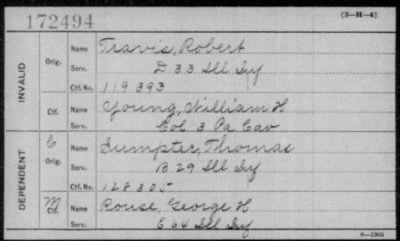 172494 (3-H-4)
INVALID Orig. Name Travis, Robert
Serv. D 33 Ill Inf
Ctf. No. 119393
Ctf. Name Young, William H
Serv. Col 3 Pa Cav
DEPENDENT C Orig. Name Sumpter, Thomas
Serv. B 29 Ill Inf
Ctf. No. 128305
M Ctf. Name Rouse, George H
Serv. E 64 Ill Inf